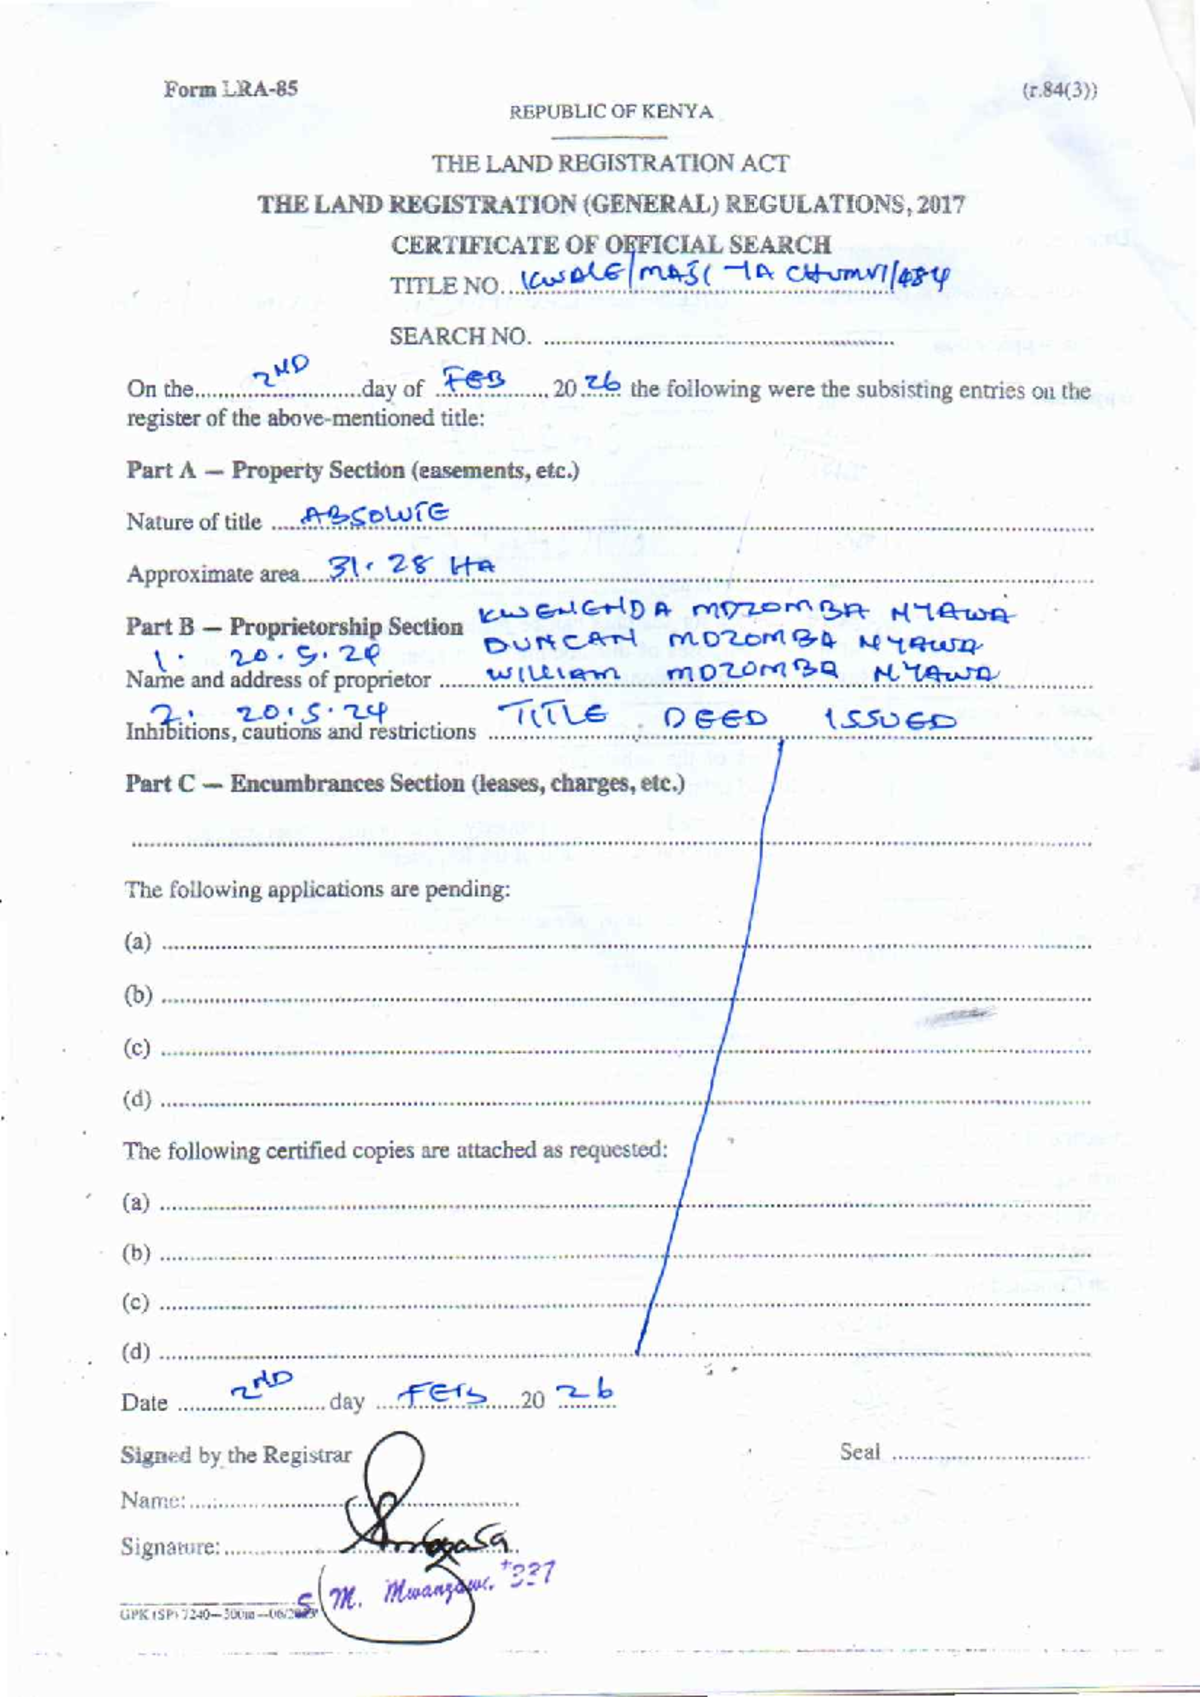 Form LRA-85 (r.84(3))
REPUBLIC OF KENYA
THE LAND REGISTRATION ACT
THE LAND REGISTRATION (GENERAL) REGULATIONS, 2017
CERTIFICATE OF OFFICIAL SEARCH
TITLE NO. KWALE/MAJI YA CHUMVI/484
SEARCH NO. ..........
On the 2ND day of FEB, 20 26 the following were the subsisting entries on the
register of the above-mentioned title:
Part A — Property Section (easements, etc.)
Nature of title ABSOLUTE
Approximate area 31.28 HA
KWENGHDA MDZOMBA NYAWA
Part B — Proprietorship Section DUNCAN MDZOMBA NYAWA
1. 20.5.24
Name and address of proprietor WILLIAM MDZOMBA NYAWA
2. 20.5.24 TITLE DEED ISSUED
Inhibitions, cautions and restrictions
Part C — Encumbrances Section (leases, charges, etc.)
The following applications are pending:
(a)
(b)
(c)
(d)
The following certified copies are attached as requested:
(a)
(b)
(c)
(d)
Date 2ND day FEB 20 26
Signed by the Registrar Seal
Name:
Signature:
S. M. Mwanzawa *337
GPK (SP) 7240—300m—06/